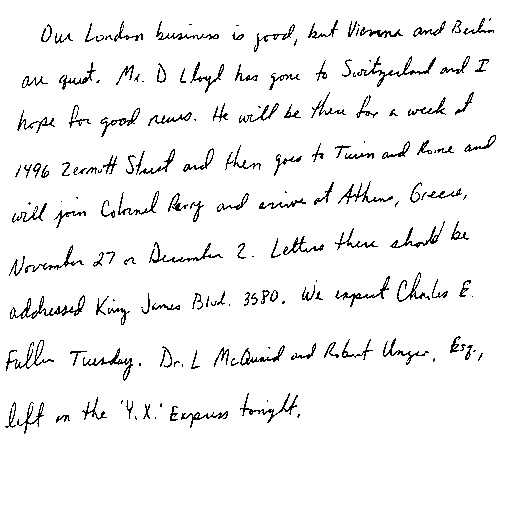 Our London business is good, but Vienna and Berlin
are quiet. Mr. D Lloyd has gone to Switzerland and I
hope for good news. He will be there for a week at
1496 Zermott Street and then goes to Turin and Rome and
will join Colonel Parry and arrive at Athens, Greece,
November 27 or December 2. Letters there should be
addressed King James Blvd. 3580. We expect Charles E.
Fuller Tuesday. Dr. L McQuaid and Robert Unger, Esq.,
left on the 'Y.X.' Express tonight.